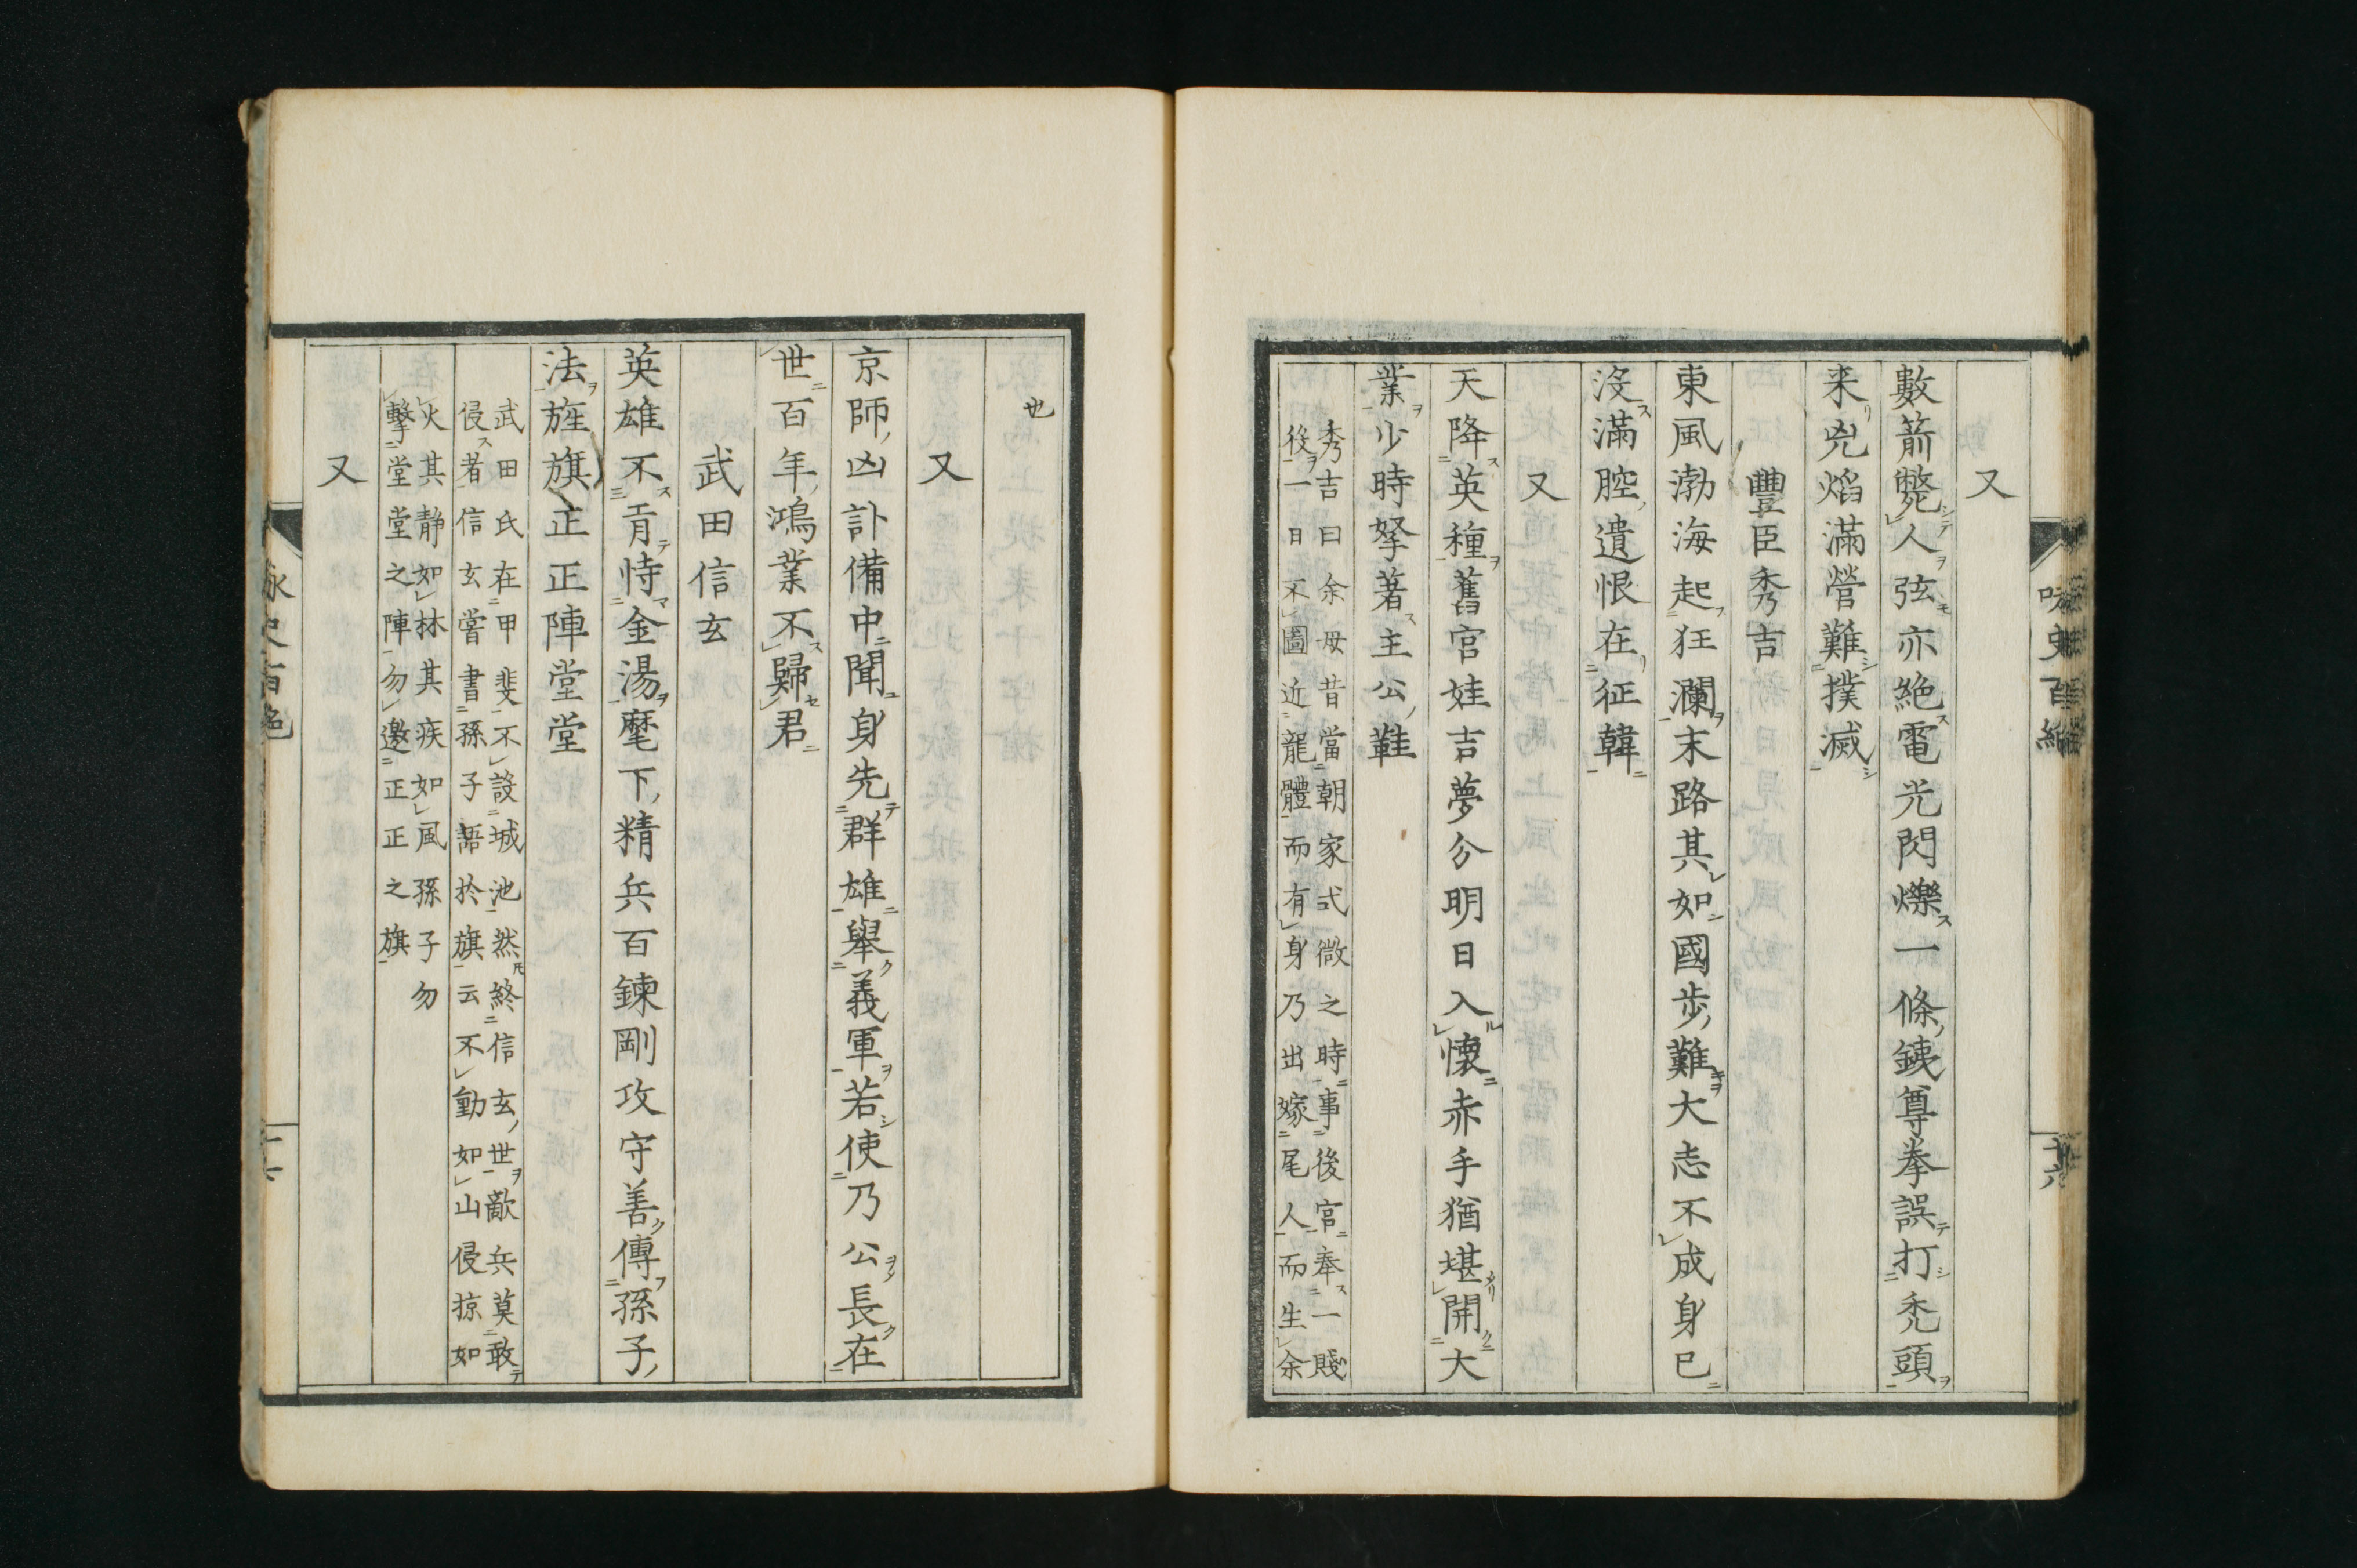 又
數箭斃人弦亦絶電光閃爍一條銕尊拳誤打禿頭
来兇焰滿營難撲滅
豐臣秀吉
東風渤海起狂瀾末路其如國歩難大志不成身已
沒滿腔遺恨在征韓
又
天降英種舊宮娃吉夢分明日入懐赤手猶堪開大
業少時拏著主公鞋
秀吉曰余母昔當朝家式微之時事後官奉一賤
役一日不圖近龍體而有身乃出嫁尾人而生余
也
又
京師凶訃備中聞身先群雄舉義軍若使乃公長在
世百年鴻業不歸君
武田信玄
英雄不肯恃金湯麾下精兵百鍊剛攻守善傳孫子
法旌旗正正陣堂堂
武田氏在甲斐不設城池然終信玄世敵兵莫敢
侵者信玄嘗書孫子語於旗云不動如山侵掠如
火其静如林其疾如風孫子勿
擊堂堂之陣勿邀正正之旗
又
十六